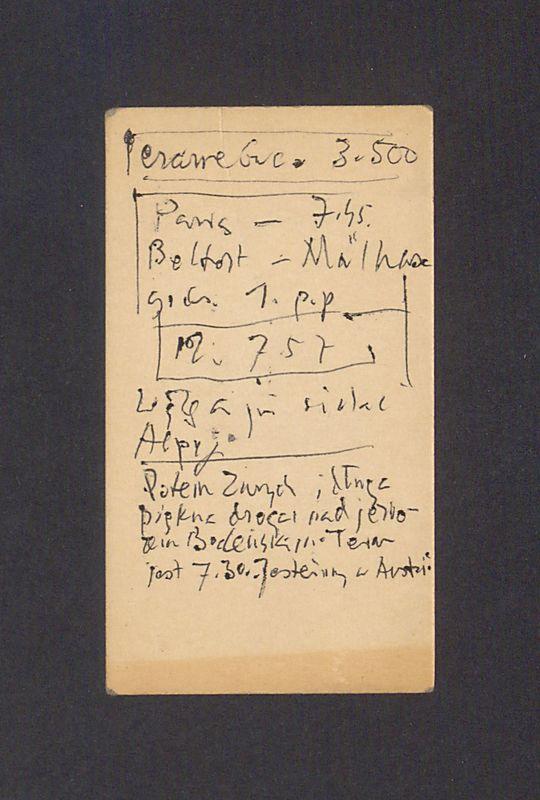 3.500
Paris — 7.45.
Belfort – Mülhause
godz. 1. p.p
M. 7 5 7
już widać
Alpy.
Potem Zurych i długa
piękna droga nad jezio-
rem Bodeńskim. Teraz
jest 7.30. Jesteśmy w Austrii